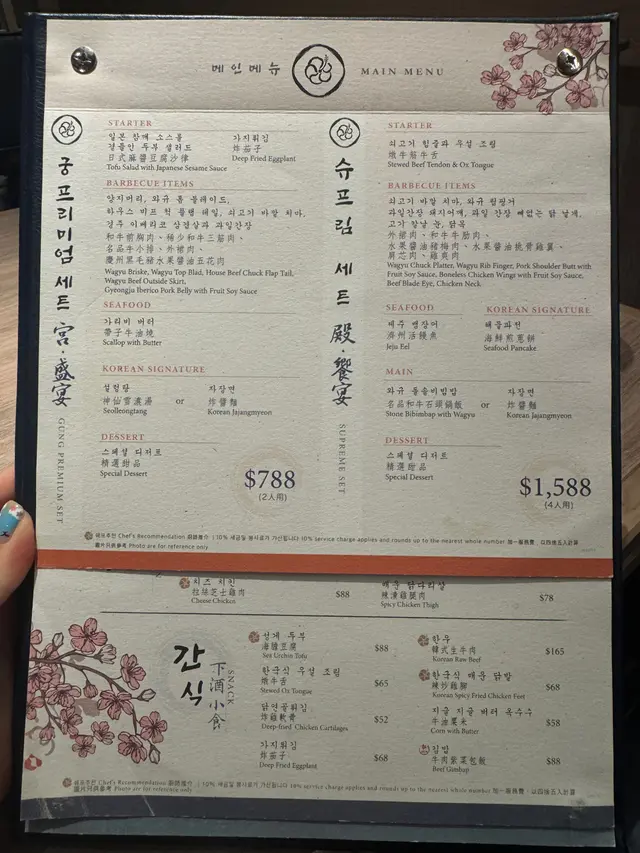 메인메뉴
MAIN MENU
궁 프리미엄 세트 宮·盛宴
GUNG PREMIUM SET
STARTER
일본 참깨 소스를
곁들인 두부 샐러드
日式麻醬豆腐沙律
Tofu Salad with Japanese Sesame Sauce
가지튀김
炸茄子
Deep Fried Eggplant
BARBECUE ITEMS
양지머리, 와규 톱 블레이드,
하우스 비프 척 플랩 테일, 쇠고기 바깥 치마,
경주 이베리코 삼겹살과 과일간장
和牛前胸肉、稀少和牛三筋肉、
名品牛小排、外裙肉、
慶州黑毛豬水果醬油五花肉
Wagyu Briske, Wagyu Top Blad, House Beef Chuck Flap Tail,
Wagyu Beef Outside Skirt,
Gyeongju Iberico Pork Belly with Fruit Soy Sauce
SEAFOOD
가리비 버터
帶子牛油燒
Scallop with Butter
KOREAN SIGNATURE
설렁탕
神仙雪濃湯
Seolleongtang
or
자장면
炸醬麵
Korean Jajangmyeon
DESSERT
스페셜 디저트
精選甜品
Special Dessert
$788
(2人用)
슈프림 세트 殿·饗宴
SUPREME SET
STARTER
쇠고기 힘줄과 우설 조림
燉牛筋牛舌
Stewed Beef Tendon & Ox Tongue
BARBECUE ITEMS
쇠고기 바깥 치마, 와규 립핑거,
과일간장 돼지어깨, 과일 간장 뼈없는 닭 날개,
고기 칼날 눈, 닭목
外裙肉、和牛牛肋肉、
水果醬油豬梅肉、水果醬油燒骨雞翼、
肩芯肉、雞頸肉
Wagyu Chuck Platter, Wagyu Rib Finger, Pork Shoulder Butt with
Fruit Soy Sauce, Boneless Chicken Wings with Fruit Soy Sauce,
Beef Blade Eye, Chicken Neck.
SEAFOOD
제주 뱀장어
濟州活鰻魚
Jeju Eel
KOREAN SIGNATURE
해물파전
海鮮煎蔥餅
Seafood Pancake
MAIN
와규 돌솥비빔밥
名品和牛石頭鍋飯
Stone Bibimbap with Wagyu
or
자장면
炸醬麵
Korean Jajangmyeon
DESSERT
스페셜 디저트
精選甜品
Special Dessert
$1,588
(4人用)
셰프추천 Chef's Recommendation 廚師推介 | 10% 세금및 봉사료가 가산됩니다 10% service charge applies and rounds up to the nearest whole number 加一服務費，以四捨五入計算
圖片只供參考 Photo are for reference only
치즈 치킨
拉絲芝士雞肉
Cheese Chicken
$88
매운 닭다리살
辣凍雞腿肉
Spicy Chicken Thigh
$78
간식
下酒小食
SNACK
성게 두부
海膽豆腐
Sea Urchin Tofu
$88
한국식 우설 조림
燉牛舌
Stewed Ox Tongue
$65
닭연골튀김
炸雞軟骨
Deep-fried Chicken Cartilages
$52
가지튀김
炸茄子
Deep Fried Eggplant
$68
한우
韓式生牛肉
Korean Raw Beef
$165
한국식 매운 닭발
辣炒雞腳
Korean Spicy Fried Chicken Feet
$68
지글 지글 버터 옥수수
牛油粟米
Corn with Butter
$58
김밥
牛肉紫菜包飯
Beef Gimbap
$88
셰프추천 Chef's Recommendation 廚師推介 | 10% 세금및 봉사료가 가산됩니다 10% service charge applies and rounds up to the nearest whole number 加一服務費，以四捨五入計算
圖片只供參考 Photo are for reference only